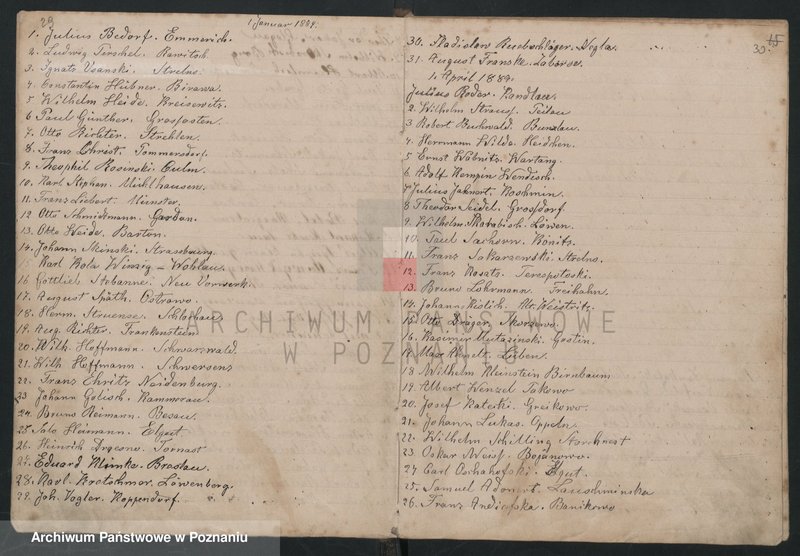 29
1 Januar 1889.
1. Julius Bedorf. Emmerich.
2. Ludwig Tirschel. Rawitsch.
3. Ignatz Usanski. Strelno.
4. Constantin Hübner. Birawa.
5 Wilhelm Heide. Kreisewitz.
6 Paul Günther. Grosposten.
7. Otto Richter. Strehlen.
8. Franz Christ. Tommersdorf.
9. Theophil Rosinski. Culm.
10. Karl Stephan. Mühlhausen.
11. Franz Liebert. Münster.
12 Otto Schmidtmann. Gardan.
13. Otto Weide. Barton.
14. Johann Minski. Strassburg.
Karl Kola Winzig – Wohlau.
16 Gottlieb Stobanne. Neu Vorwerk.
17. August Späth. Ostrowo.
18. Herm. Struense. Schlochau
19. Aug. Richter. Frankenstein
20. Wilh. Hoffmann. Schwarzwald.
21. Wilh Hoffmann. Schwersenz
22. Franz Ehritz Neidenburg.
23 Johann Golisch. Kammerau.
24. Bruno Reimann. Besau.
25 Salo Heimann. Elgut
26. Heinrich Drgesno. Tornast
27. Eduard Klimka. Breslau.
28. Karl. Kretschmar. Löwenberg.
29. Joh. Vogler. Koppendorf.
30.
65
30. Stadislow Ruebschläger. Negla.
31. August Franske. Labarse.
1. April 1889.
Julius Roder. Kandlau.
2. Wilhelm Strauss. Teilau
3 Robert Buchwald. Bunzlau.
4. Herrmann Wilde. Heidchen.
5. Ernst Wobnitz. Wartang.
6. Adolf Kempin Wendisch.
7 Julius Jahnert. Koschmin.
8 Theodor Seidel. Grosfdorf.
9. Wilhelm Skarabisch. Löwen.
10. Paul Sachorn. Könitz.
11. Franz Sakarzewski. Strelno.
12. Franz Kosatz. Terespotoski.
13. Bruno Lohrmann. Freihahn.
14. Johann Kolich. Alt Weistritz.
15. Otto Dräger. Morzewo.
16. Kasimir Mutazinski. Gostin.
17 Max Klemelt. Lüben.
18 Wilhelm Kleinstein Birnbaum
19. Albert Wenzel Jakowo
20. Josef Kalecki. Greikowo.
21. Johann Lukas. Oppeln.
22. Wilhelm Schilling Storchnest
23 Oskar Weiss. Bojanowo.
24 Carl Oschahofski. Elgut.
25. Samuel Adomert. Lauschminska
26. Franz Andicofska. Banikowo
ARCHIWUM PAŃSTWOWE
W POZNANIU
Archiwum Państwowe w Poznaniu